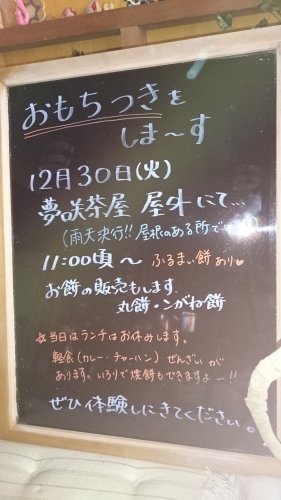 おもちつきを
しま〜す
12月30日(火)
夢咲茶屋 屋外にて…
(雨天決行!! 屋根のある所で
11:00頃〜 ふるまい餅あり♥
お餅の販売もします。
丸餅・こがね餅
☆当日はランチはお休みします。
軽食(カレー・チャーハン) ぜんざいが
あります。いろりで焼餅もできますよー!!
ぜひ体験しにきてください。